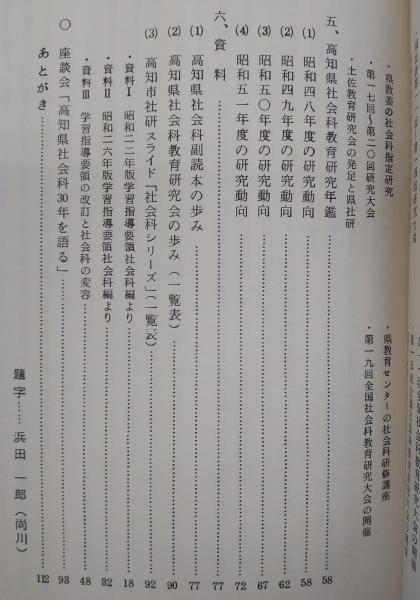 ・県教委の社会科指定研究　・県教育センターの社会科研修講座
・第一七回～第二〇回研究大会　・第一九回全国社会科教育研究大会の開催
・土佐教育研究会の発足と県社研
五、高知県社会科教育研究年鑑……58
(1) 昭和四八年度の研究動向……58
(2) 昭和四九年度の研究動向……62
(3) 昭和五〇年度の研究動向……67
(4) 昭和五一年度の研究動向……72
六、資料……77
(1) 高知県社会科副読本の歩み……77
(2) 高知県社会科教育研究会の歩み（一覧表）……90
(3) 高知市社研スライド「社会科シリーズ」（一覧表）……92
・資料Ⅰ　昭和二二年版学習指導要領社会科編より……18
・資料Ⅱ　昭和二六年版学習指導要領社会科編より……32
・資料Ⅲ　学習指導要領の改訂と社会科の変容……48
○ 座談会「高知県社会科30年を語る」……93
あとがき……112
題字……浜田一郎（尚川）